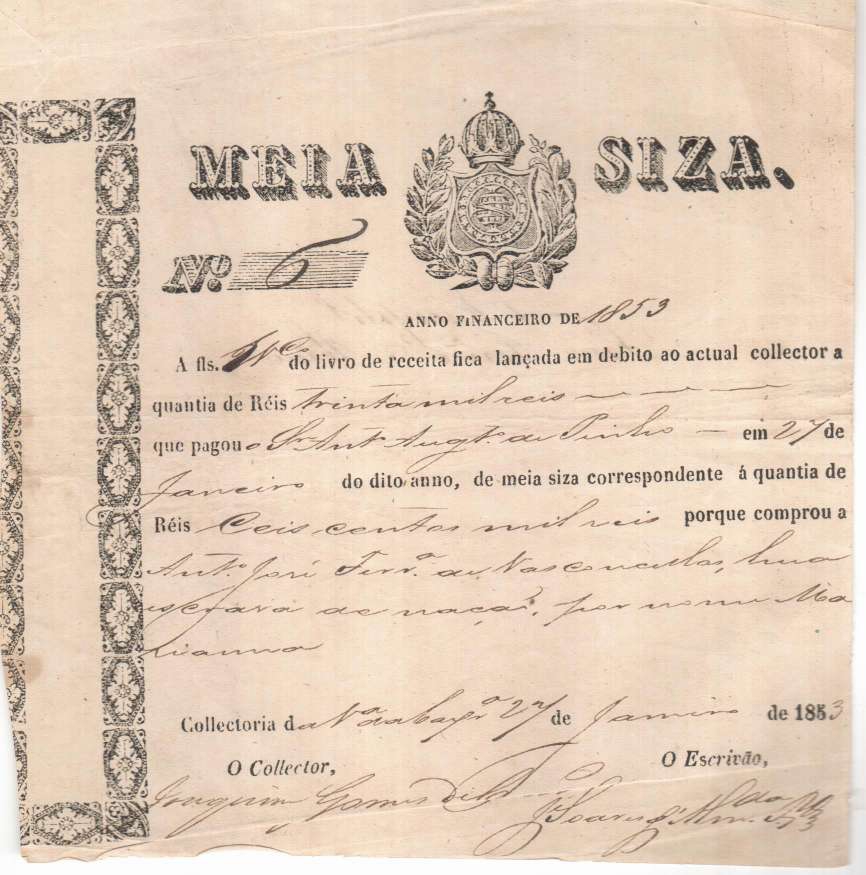 MEIA SIZA.
Nº 6
ANNO FINANCEIRO DE 1853
A fls. do livro de receita fica lançada em debito ao actual collector a
quantia de Réis trinta mil reis
que pagou o Snr. Antº Augtº de Pinho em 27 de
Janeiro do dito anno, de meia siza correspondente á quantia de
Réis Ceis centos mil reis porque comprou a
Antº José Ferrª de Vasconcellos, hua
escrava de nação, por nome Ma
rianna
Collectoria da 27 de Janeiro de 1853
O Collector, O Escrivão,
Joaquim Gomes
Soares